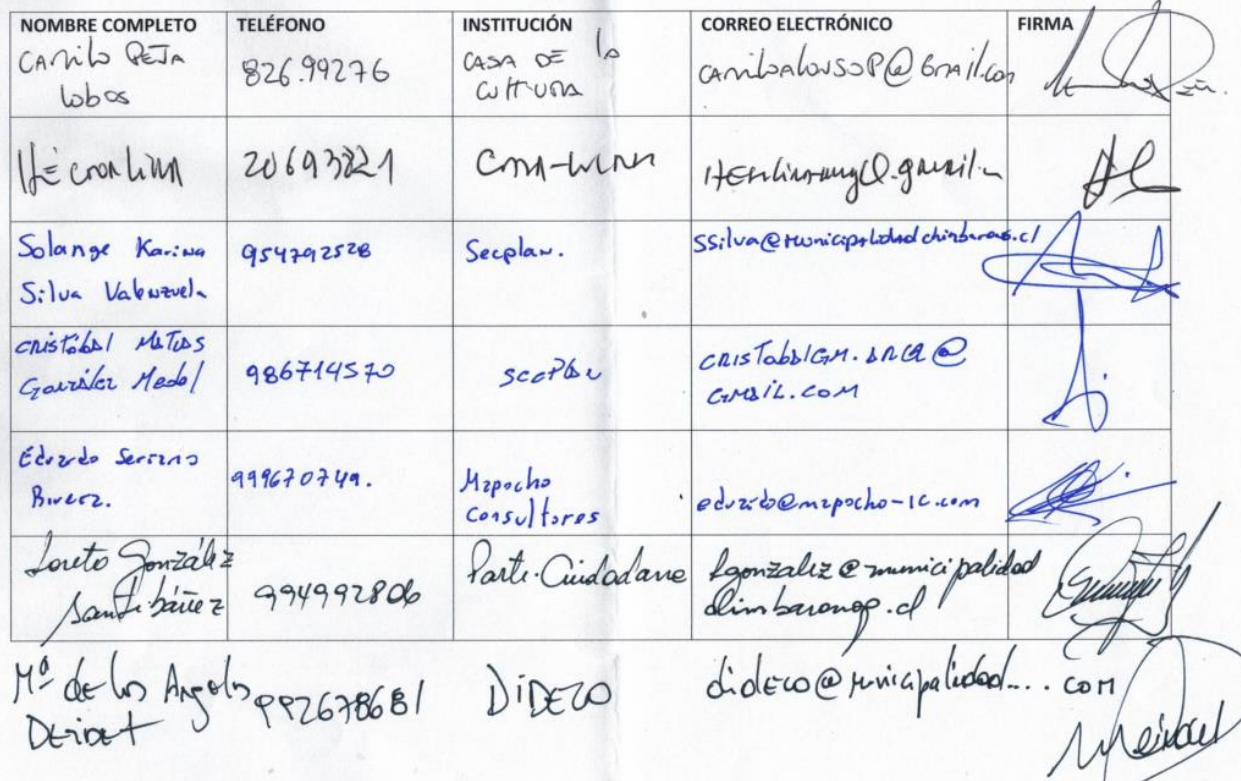 NOMBRE COMPLETO TELÉFONO INSTITUCIÓN CORREO ELECTRÓNICO FIRMA
Camilo Peña Lobos 826.99276 CASA DE la CULTURA camiloalonsoP@Gmail.com
Héctor Lima 20693221
Solange Karina Silva Valenzuela 954792528 Secplan. SSilva@municipalidadchimbarongo.cl
Cristóbal Matias González Medel 986714570 secplan CRISTobalGM.ARQ@GMAIL.COM
Eduardo Serrano Rivera. 999670749. Mapocho Consultores eduardo@mapocho-ic.com
Loreto González Santibáñez 994992806 Parte. Ciudadana lgonzalez@municipalidadchimbarongo.cl
Mª de los Angeles 992678681 DIDECO dideco@municipalidad... com